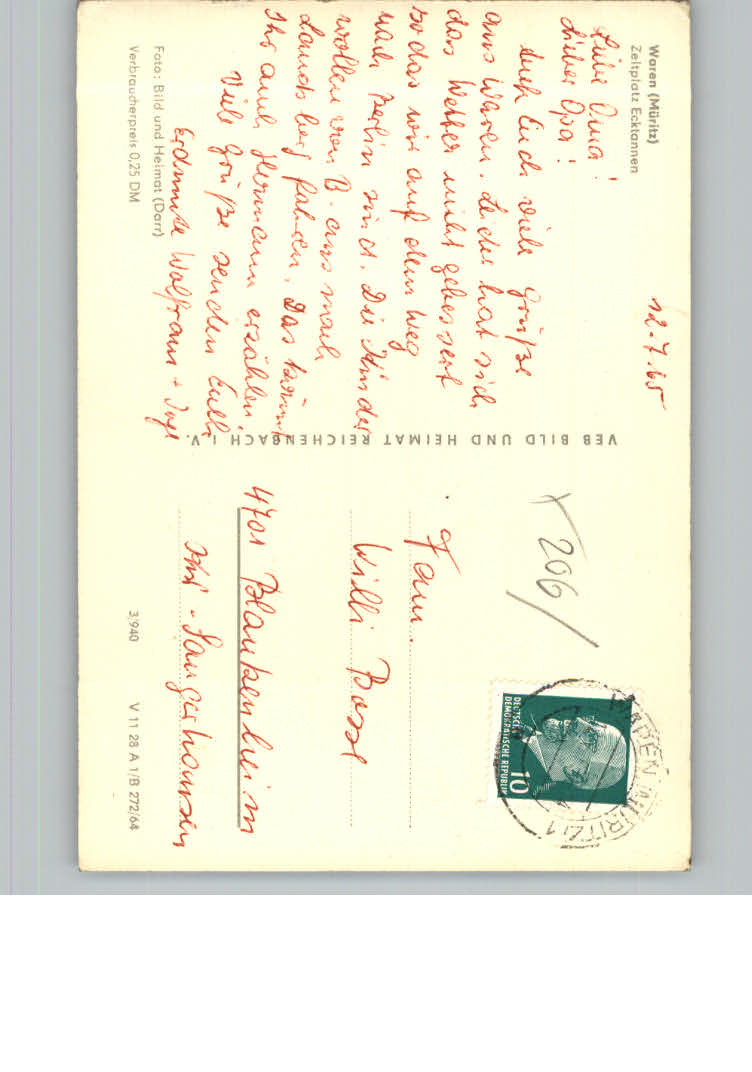 Waren (Müritz)
Zeltplatz Ecktannen
12.7.65
Liebe Oma!
Lieber Opa!
Auch Euch viele Grüße
aus Waren. Leider hat sich
das Wetter nicht gebessert
so das wir auf dem Weg
nach Berlin sind. Die Kinder
wollen von B. aus nach
Landsberg fahren. Das könnt
Ihr auch Hermann erzählen.
Viele Grüße senden Euch
Erdmute Wolfram + Inge
Foto: Bild und Heimat (Darr)
Verbraucherpreis 0,25 DM
VEB BILD UND HEIMAT REICHENBACH I. V.
206
DEUTSCHE
DEMOKRATISCHE REPUBLIK
10
WAREN (MÜRITZ) 1
Fam.
Willi Bosse
4701 Blankenheim
Krs. Sangerhausen
3/940 V 11 28 A 1/B 272/64